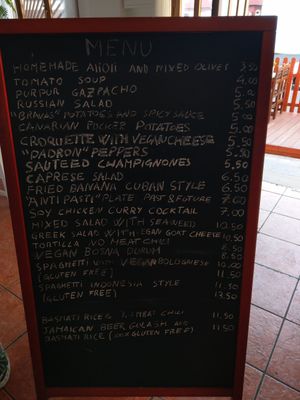 MENU
HOMEMADE AIIOII AND MIXED OLIVES 3,50
TOMATO SOUP 4,00
PURPUR GAZPACHO 5,00
RUSSIAN SALAD 5,50
"BRAVAS" POTATOES AND SPICY SAUCE 5,00
CANARIAN POTATOES 5,50
CROQUETTE WITH VEGAN CHEESE 5,50
"PADRON" PEPPERS 5,50
SAUTEED CHAMPIGNONES 5,50
CAPRESE SALAD 6,50
FRIED BANANA CUBAN STYLE 6,50
"ANTIPASTI" PLATE PAST & FUTURE 7,00
SOY CHICKEN CURRY COCKTAIL 7,00
MIXED SALAD WITH SEAWEED 10,50
GREEK SALAD WITH VEGAN GOAT CHEESE
TORTILLA NO MEAT CHILI
VEGAN BOSNA DURUM 8,50
SPAGHETTI WITH VEGAN BOLOGNESE 10,00
(GLUTEN FREE) 11,50
SPAGHETTI INDONESIA STYLE 11,50
(GLUTEN FREE) 13,50
BASMATI RICE & CHILI 11,50
JAMAICAN BEER GULASH AND
BASMATI RICE (GLUTEN FREE) 11,50